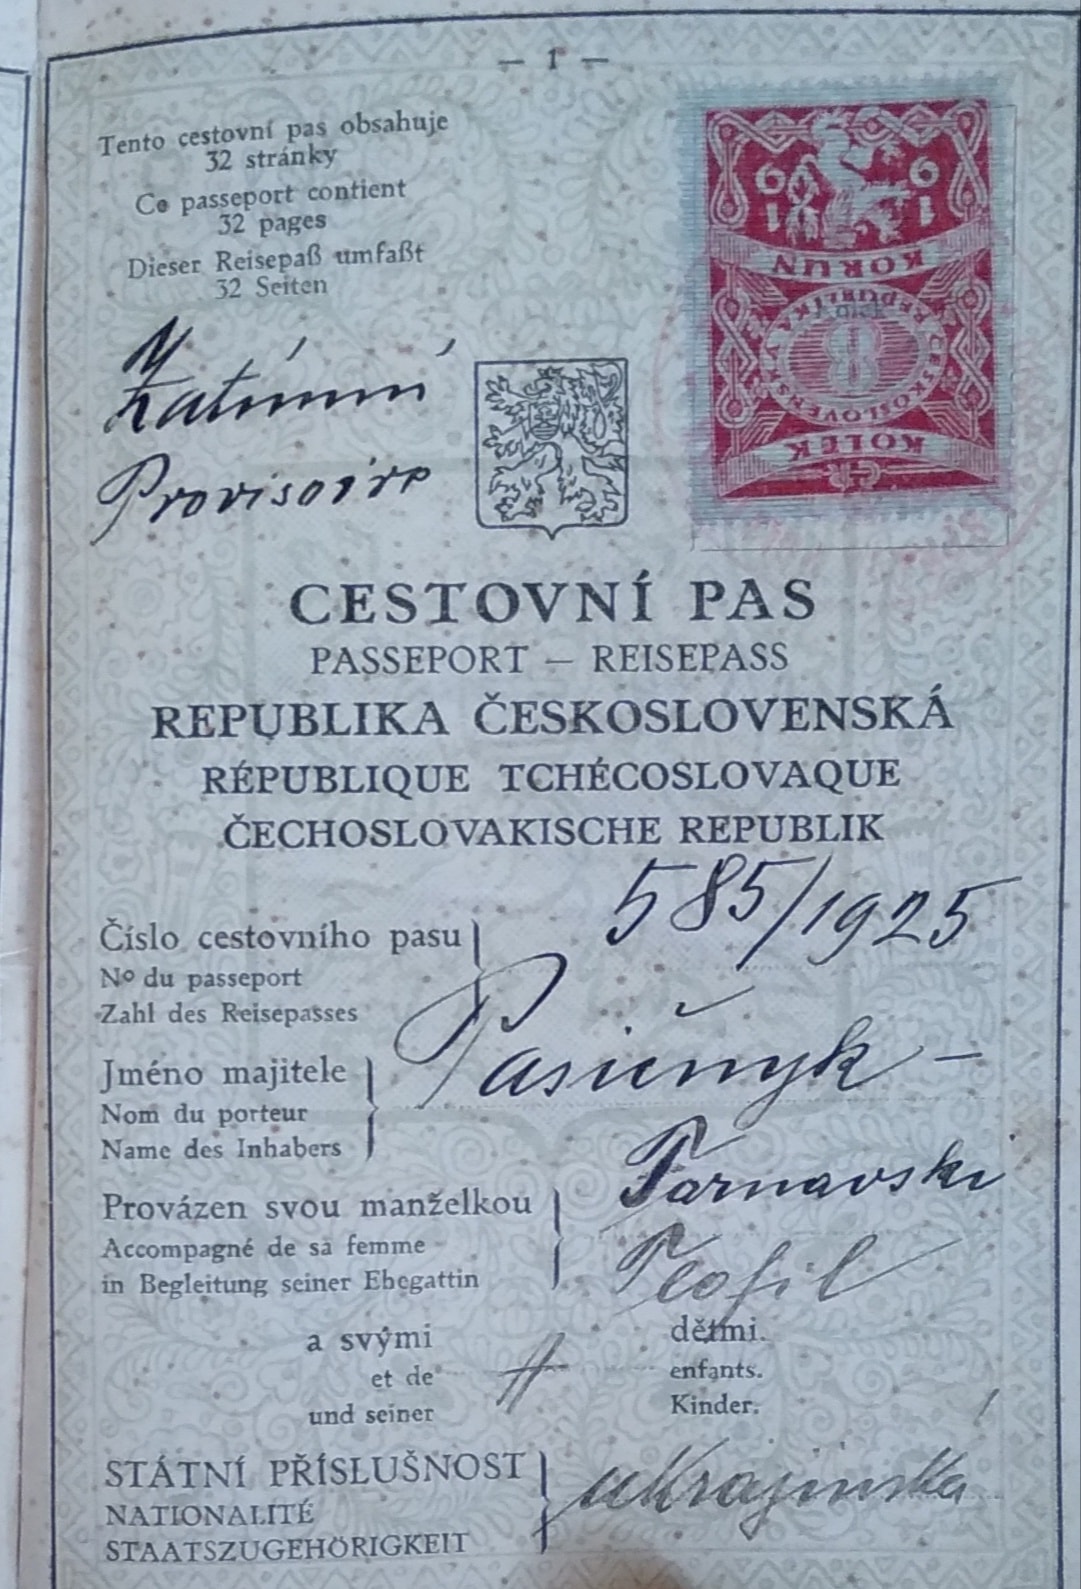 — 1 —
Tento cestovní pas obsahuje
32 stránky
Ce passeport contient
32 pages
Dieser Reisepaß umfaßt
32 Seiten
Zatímní
Provisoire
16 16
KORUN
REPUBLIKA ČESKOSLOVENSKÁ
8
KOLEK
CESTOVNÍ PAS
PASSEPORT — REISEPASS
REPUBLIKA ČESKOSLOVENSKÁ
RÉPUBLIQUE TCHÉCOSLOVAQUE
ČECHOSLOVAKISCHE REPUBLIK
585/1925
Číslo cestovního pasu
Nº du passeport
Zahl des Reisepasses
Pasičnyk –
Jméno majitele
Nom du porteur
Name des Inhabers
Tarnavski
Provázen svou manželkou
Accompagné de sa femme
in Begleitung seiner Ehegattin
Teofil
a svými dětmi.
et de enfants.
und seiner Kinder.
STÁTNÍ PŘÍSLUŠNOST ukrajinská
NATIONALITÉ
STAATSZUGEHÖRIGKEIT